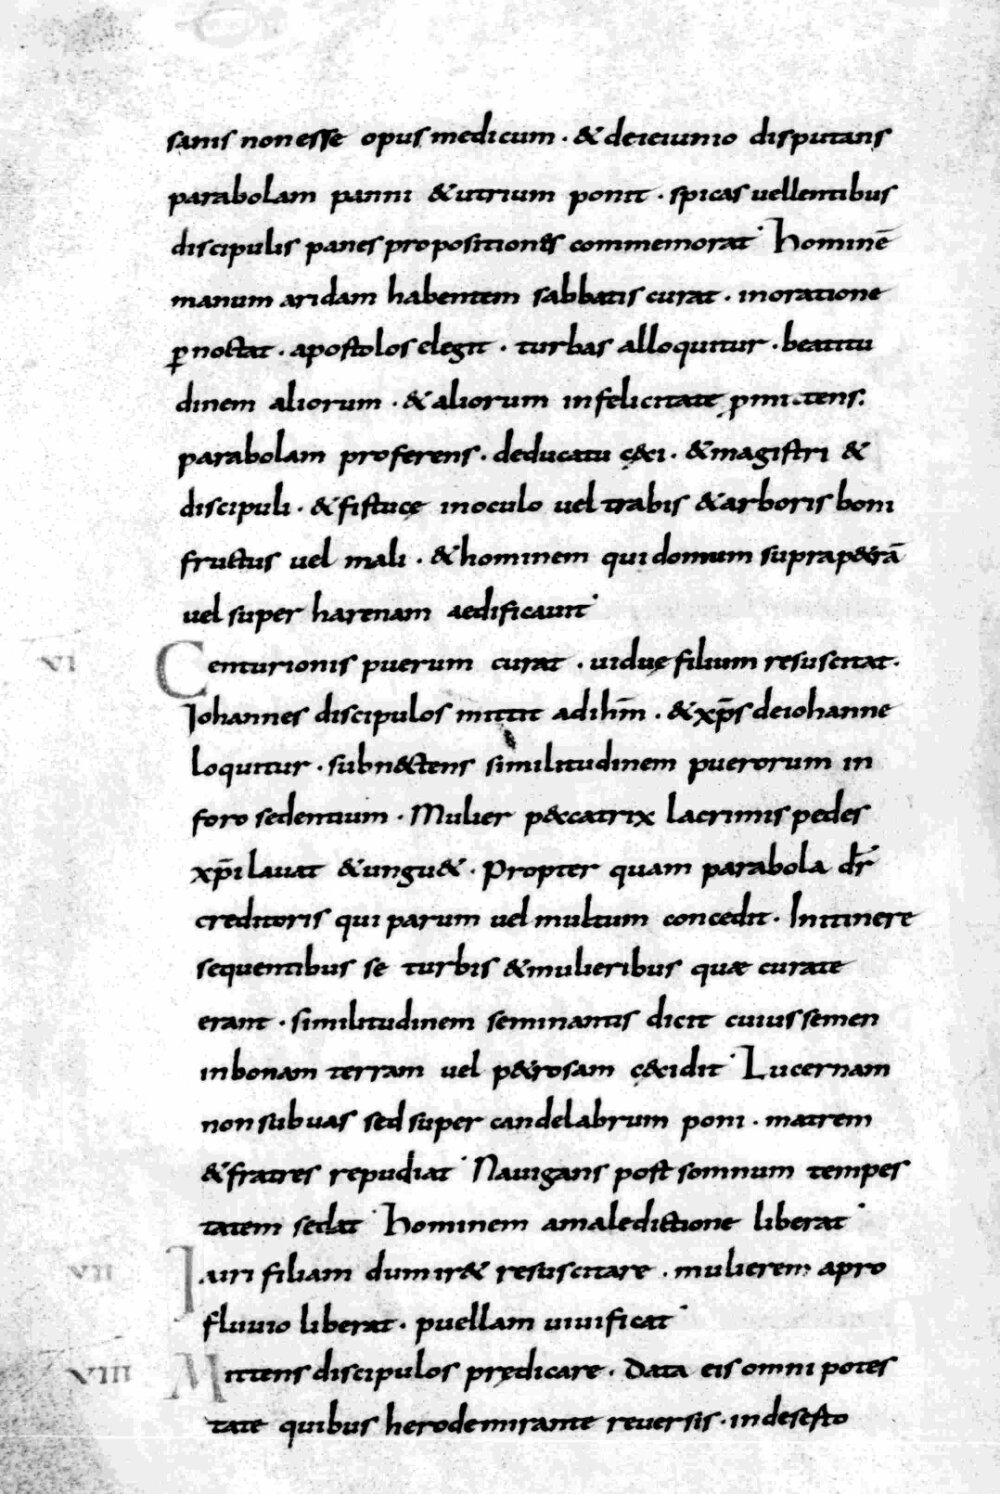 sanis non esse opus medicum · & deieiunio disputans
parabolam panni & utrium ponit · spicas uellentibus
discipulis panes propositionis commemorat · Hominē
manum aridam habentem sabbatis curat · inoratione
ꝑnoctat · apostolos elegit · turbas alloquitur · beatitu
dinem aliorum · & aliorum infelicitatē
parabolam proferens · deducatu cęci · & magistri &
discipuli · & fistucę inoculo uel trabis & arboris boni
fructus uel mali · & hominem qui domum suprap&rā
uel super harenam aedificauit ·
VI Centurionis puerum curat · uiduę filium resuscitat ·
Iohannes discipulos mittit adihm̄ · & xp̄s deiohanne
loquitur · subn&ctens similitudinem puerorum in
foro sedentium · Mulier p&ccatrix lacrimis pedes
xp̄i lauat & ungu& · Propter quam parabola dr̄
creditoris qui parum uel multum concedit · Initinere
sequentibus se turbis & mulieribus quæ curate
erant · similitudinem seminantis dicit cuius semen
inbonam terram uel p&rosam c&cidit · Lucernam
non sub uas sed super candelabrum poni · matrem
& fratres repudiat · Nauigans post somnum tempes
tatem sedat · Hominem amaledictione liberat ·
VII Iairi filiam dum ir& resuscitare · mulierem apro
fluuio liberat · puellam uiuificat ·
VIII Mittens discipulos prędicare · Data eis omni potes
tate quibus herode mirante reuersis · indesesto